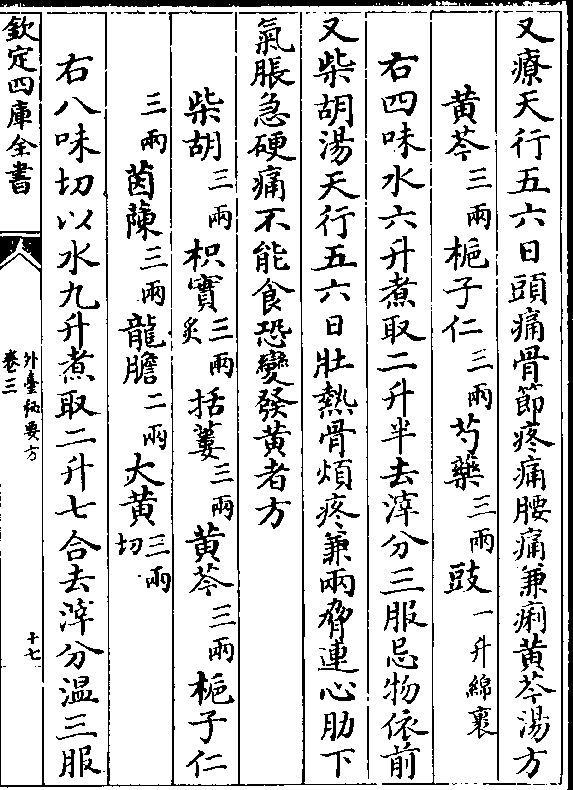 又療天行五六日頭痛骨節疼痛腰痛兼痢黃芩湯方
黃芩三兩梔子仁三兩芍藥三兩豉一升綿裹
右四味水六升煮取二升半去滓分三服忌物依前
又柴胡湯天行五六日壯熱骨煩疼兼兩脅連心肋下
氣脹急硬痛不能食恐變發黃者方
柴胡三兩枳實三兩炙括蔞三兩黃芩三兩梔子仁
三兩茵蔯三兩龍膽二兩大黃三兩切
右八味切以水九升煮取二升七合去滓分温三服
欽定四庫全書
外臺秘要方
卷三
十七